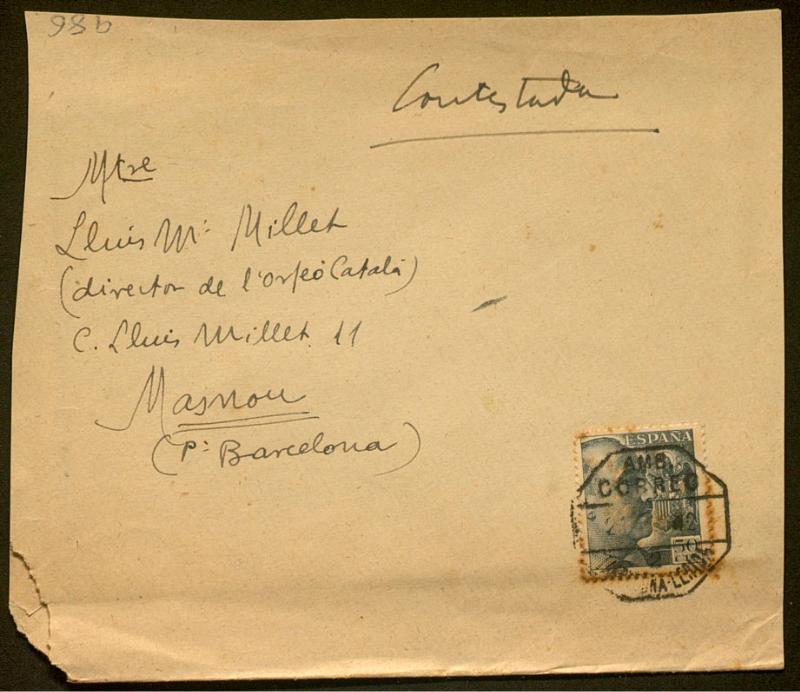 98b
Contestada
Mtre
Lluis Mª Millet
(director de l'Orfeó Català)
C. Lluis Millet 11
Masnou
(Pª Barcelona)
ESPAÑA
AMB.
CORREO
50